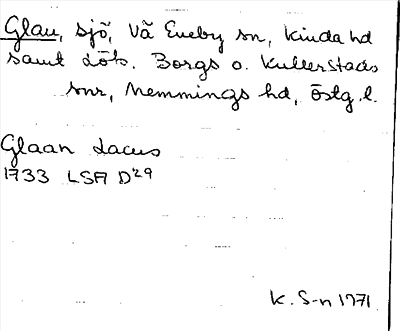 Glan, sjö, Vå Eneby sn, Kinda hd
samt Löts. Borgs o. Kullerstads
snr, Memmings hd, Östg. l.
Glaan Lacus
1733 LSA D29
K. S-n 1971